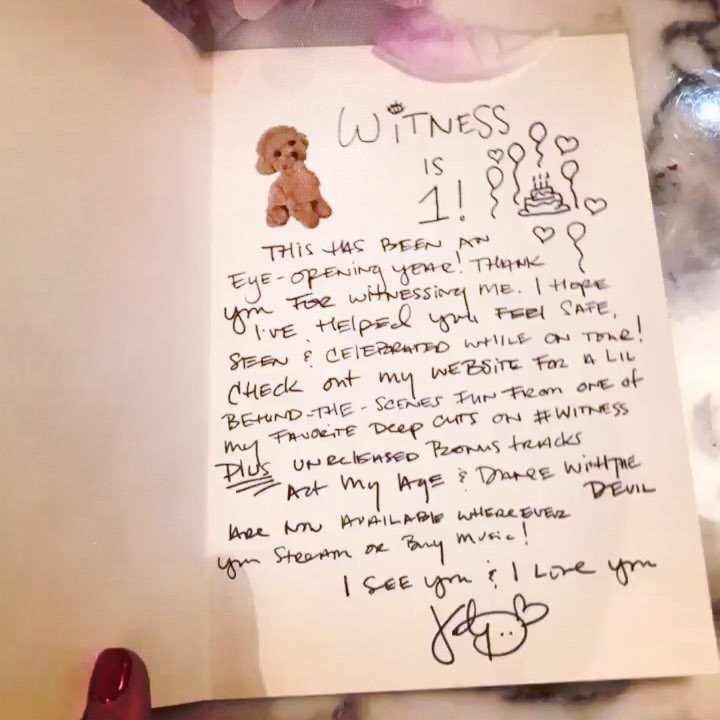 WiTNESS
IS
1!
THIS HAS BEEN AN
EYE-OPENING YEAR! THANK
you FOR WITNESSING ME. I HOPE
I'VE HELPED you FEEL SAFE,
SEEN & CELEBRATED WHILE ON TOUR!
CHECK out my WEBSITE FOR A LIL
BEHIND-THE-SCENES FUN FROM ONE of
my FAVORITE DEEP CUTS ON #WITNESS
PLUS UNRELEASED BONUS tRACKS
Act My Age & DANCE WITH THE
DEVIL
ARE NOW AVAILABLE WHEREEVER
you STREAM OR Buy Music!
I SEE you & I LOVE you